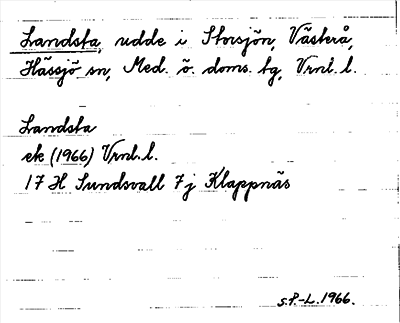 Landsta, udde i Storsjön, Västerå,
Hässjö sn, Med. ö. doms. tg, Vrnl. l.
Landsta
ek (1966) Vrnl. l.
17 H Sundsvall 7 j Klappnäs
S.P.-L. 1966.